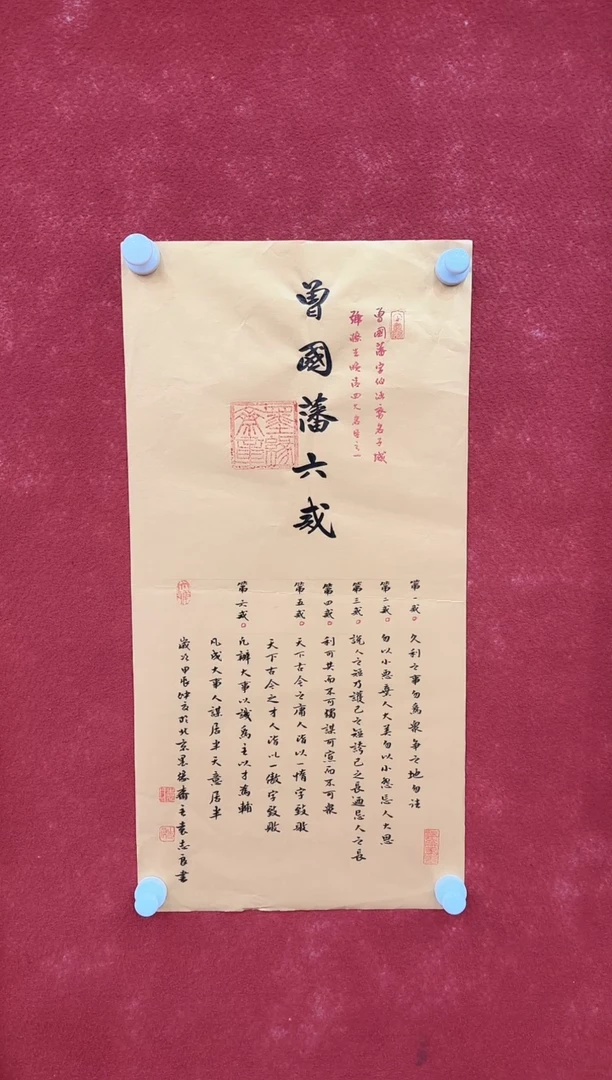 曾國藩字伯涵號名子城
曾國藩六戒
第一戒。久利之事勿爲衆爭之地勿往
第二戒。勿以小惡棄人大美勿以小怨忘人大恩
第三戒。說人之短乃護己之短誇己之長適忌人之長
第四戒。利可共而不可獨謀可寡而不可衆
第五戒。天下古今之庸人皆以一惰字致敗
天下古今之才人皆以一傲字致敗
第六戒。凡辦大事以識爲主以才爲輔
凡成大事人謀居半天意居半
歲次甲辰仲於北京墨緣齋主志書